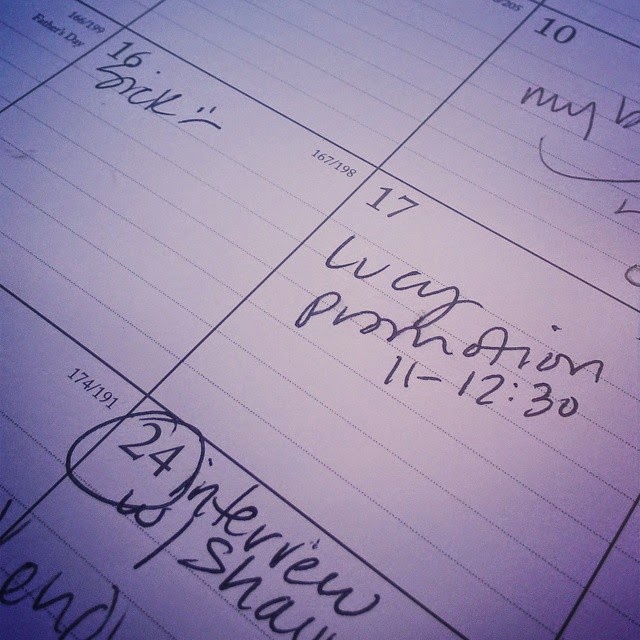 166/199
Father's Day
16
Sick :(
10
my
167/198
17
promotion
11-12:30
174/191
24 interview
w/ Shau